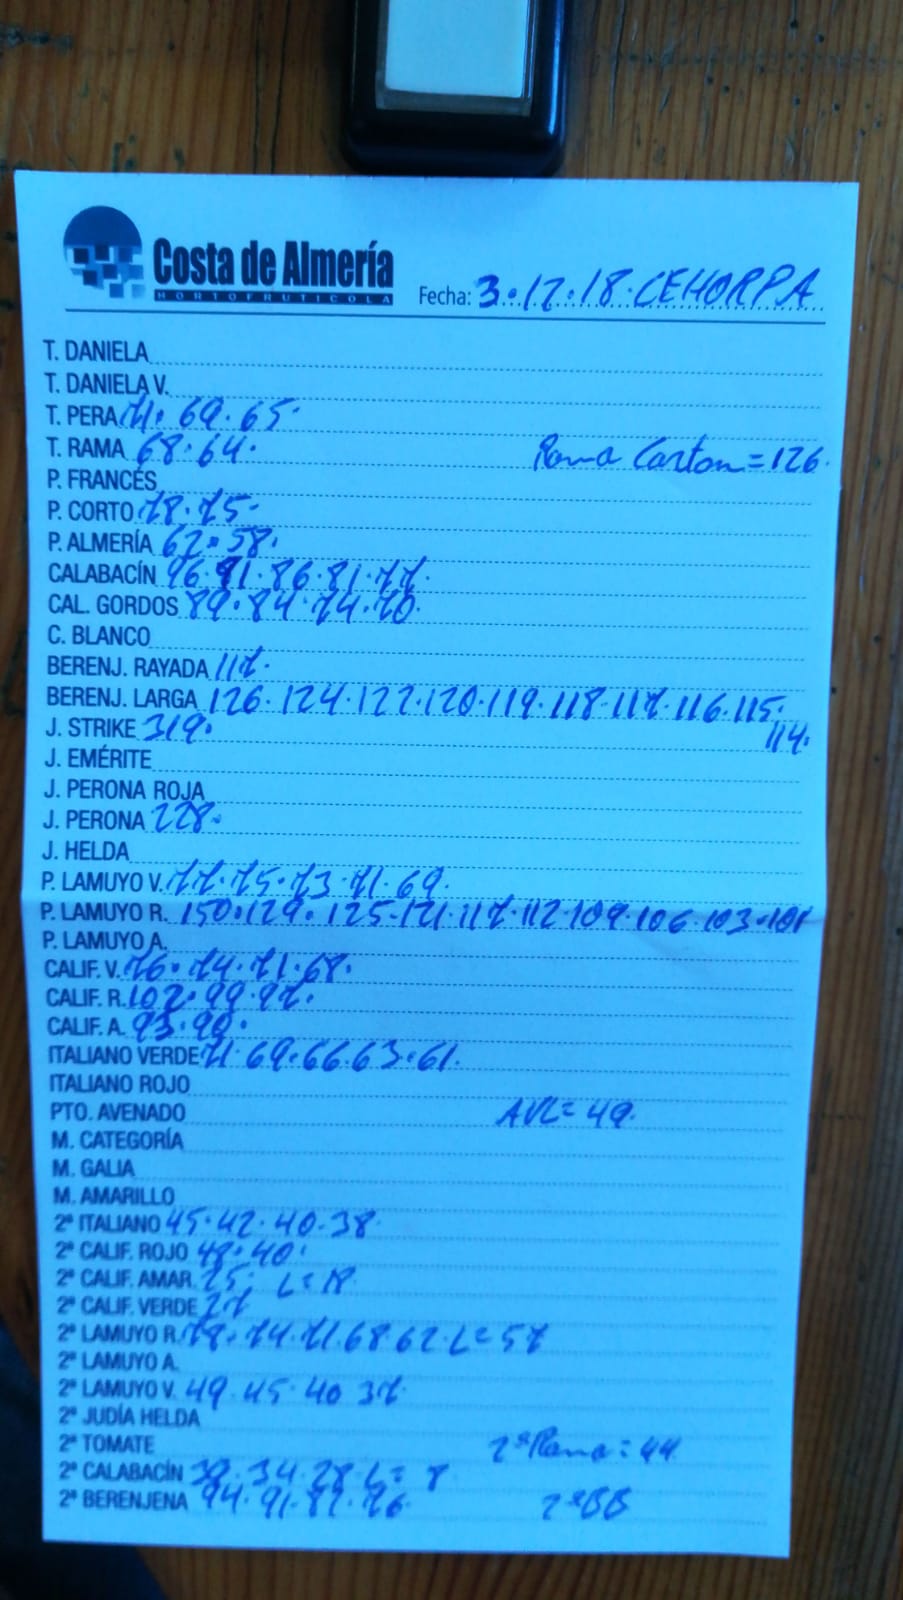 Costa de Almería
HORTOFRUTICOLA
Fecha: 3.12.18.CEHORPA
T. DANIELA
T. DANIELA V.
T. PERA 71. 69. 65.
T. RAMA 68.64. Rama Carton=126.
P. FRANCÉS
P. CORTO 78.75.
P. ALMERÍA 62.58.
CALABACÍN 96.91.86.81.77.
CAL. GORDOS 89.84.74.70.
C. BLANCO
BERENJ. RAYADA 117.
BERENJ. LARGA 126.124.122.120.119.118.117.116.115.
114.
J. STRIKE 319.
J. EMÉRITE
J. PERONA ROJA
J. PERONA 228.
J. HELDA
P. LAMUYO V. 77.75.73.71.69.
P. LAMUYO R. 150.129.125.121.117.112.109.106.103.101
P. LAMUYO A.
CALIF. V. 76.74.71.68.
CALIF. R. 102.99.97.
CALIF. A. 93.90.
ITALIANO VERDE 71.69.66.63.61.
ITALIANO ROJO
PTO. AVENADO AVL=49.
M. CATEGORÍA
M. GALIA
M. AMARILLO
2ª ITALIANO 45.42.40.38.
2ª CALIF. ROJO 48.40.
2ª CALIF. AMAR. 25. L=18
2ª CALIF. VERDE 27
2ª LAMUYO R. 78.74.71.68 62 L=57
2ª LAMUYO A.
2ª LAMUYO V. 49.45.40 37.
2ª JUDÍA HELDA
2ª TOMATE 2ª Rama=44
2ª CALABACÍN 39.34.28.L=8
2ª BERENJENA 94.91.87.76 2ªBB